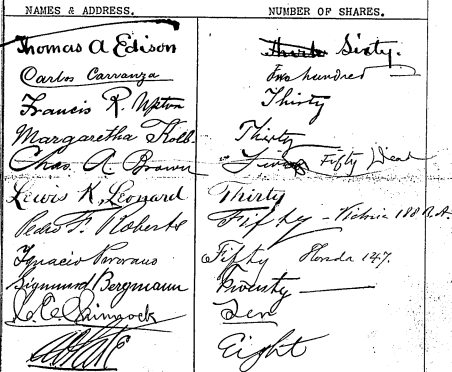 NAMES & ADDRESS. NUMBER OF SHARES.
Thomas A Edison Sixty.
Carlos Carranza Two hundred
Francis R. Upton Thirty
Margaretha Kolb Thirty
Chas. A. Brown Fifty
Lewis K. Leonard Thirty
Pedro F. Roberts Fifty - Victoria 188 R.A.
Ignacio Fifty Florida 147.
Sigmund Bergmann Twenty
Ten
Eight